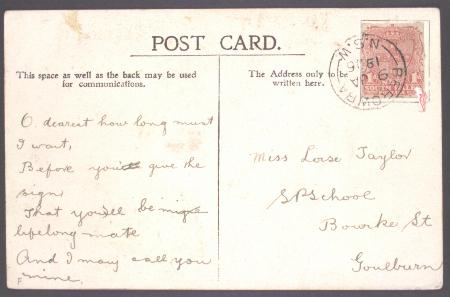 POST CARD.
This space as well as the back may be used
for communications.
The Address only to be
written here.
N.S.W.
O. dearest how long must
I wait,
Before you'll give the
sign
That you'll be
lifelong mate
And I may call you
mine.
Miss Taylor
S P School
Bourke St
Goulburn